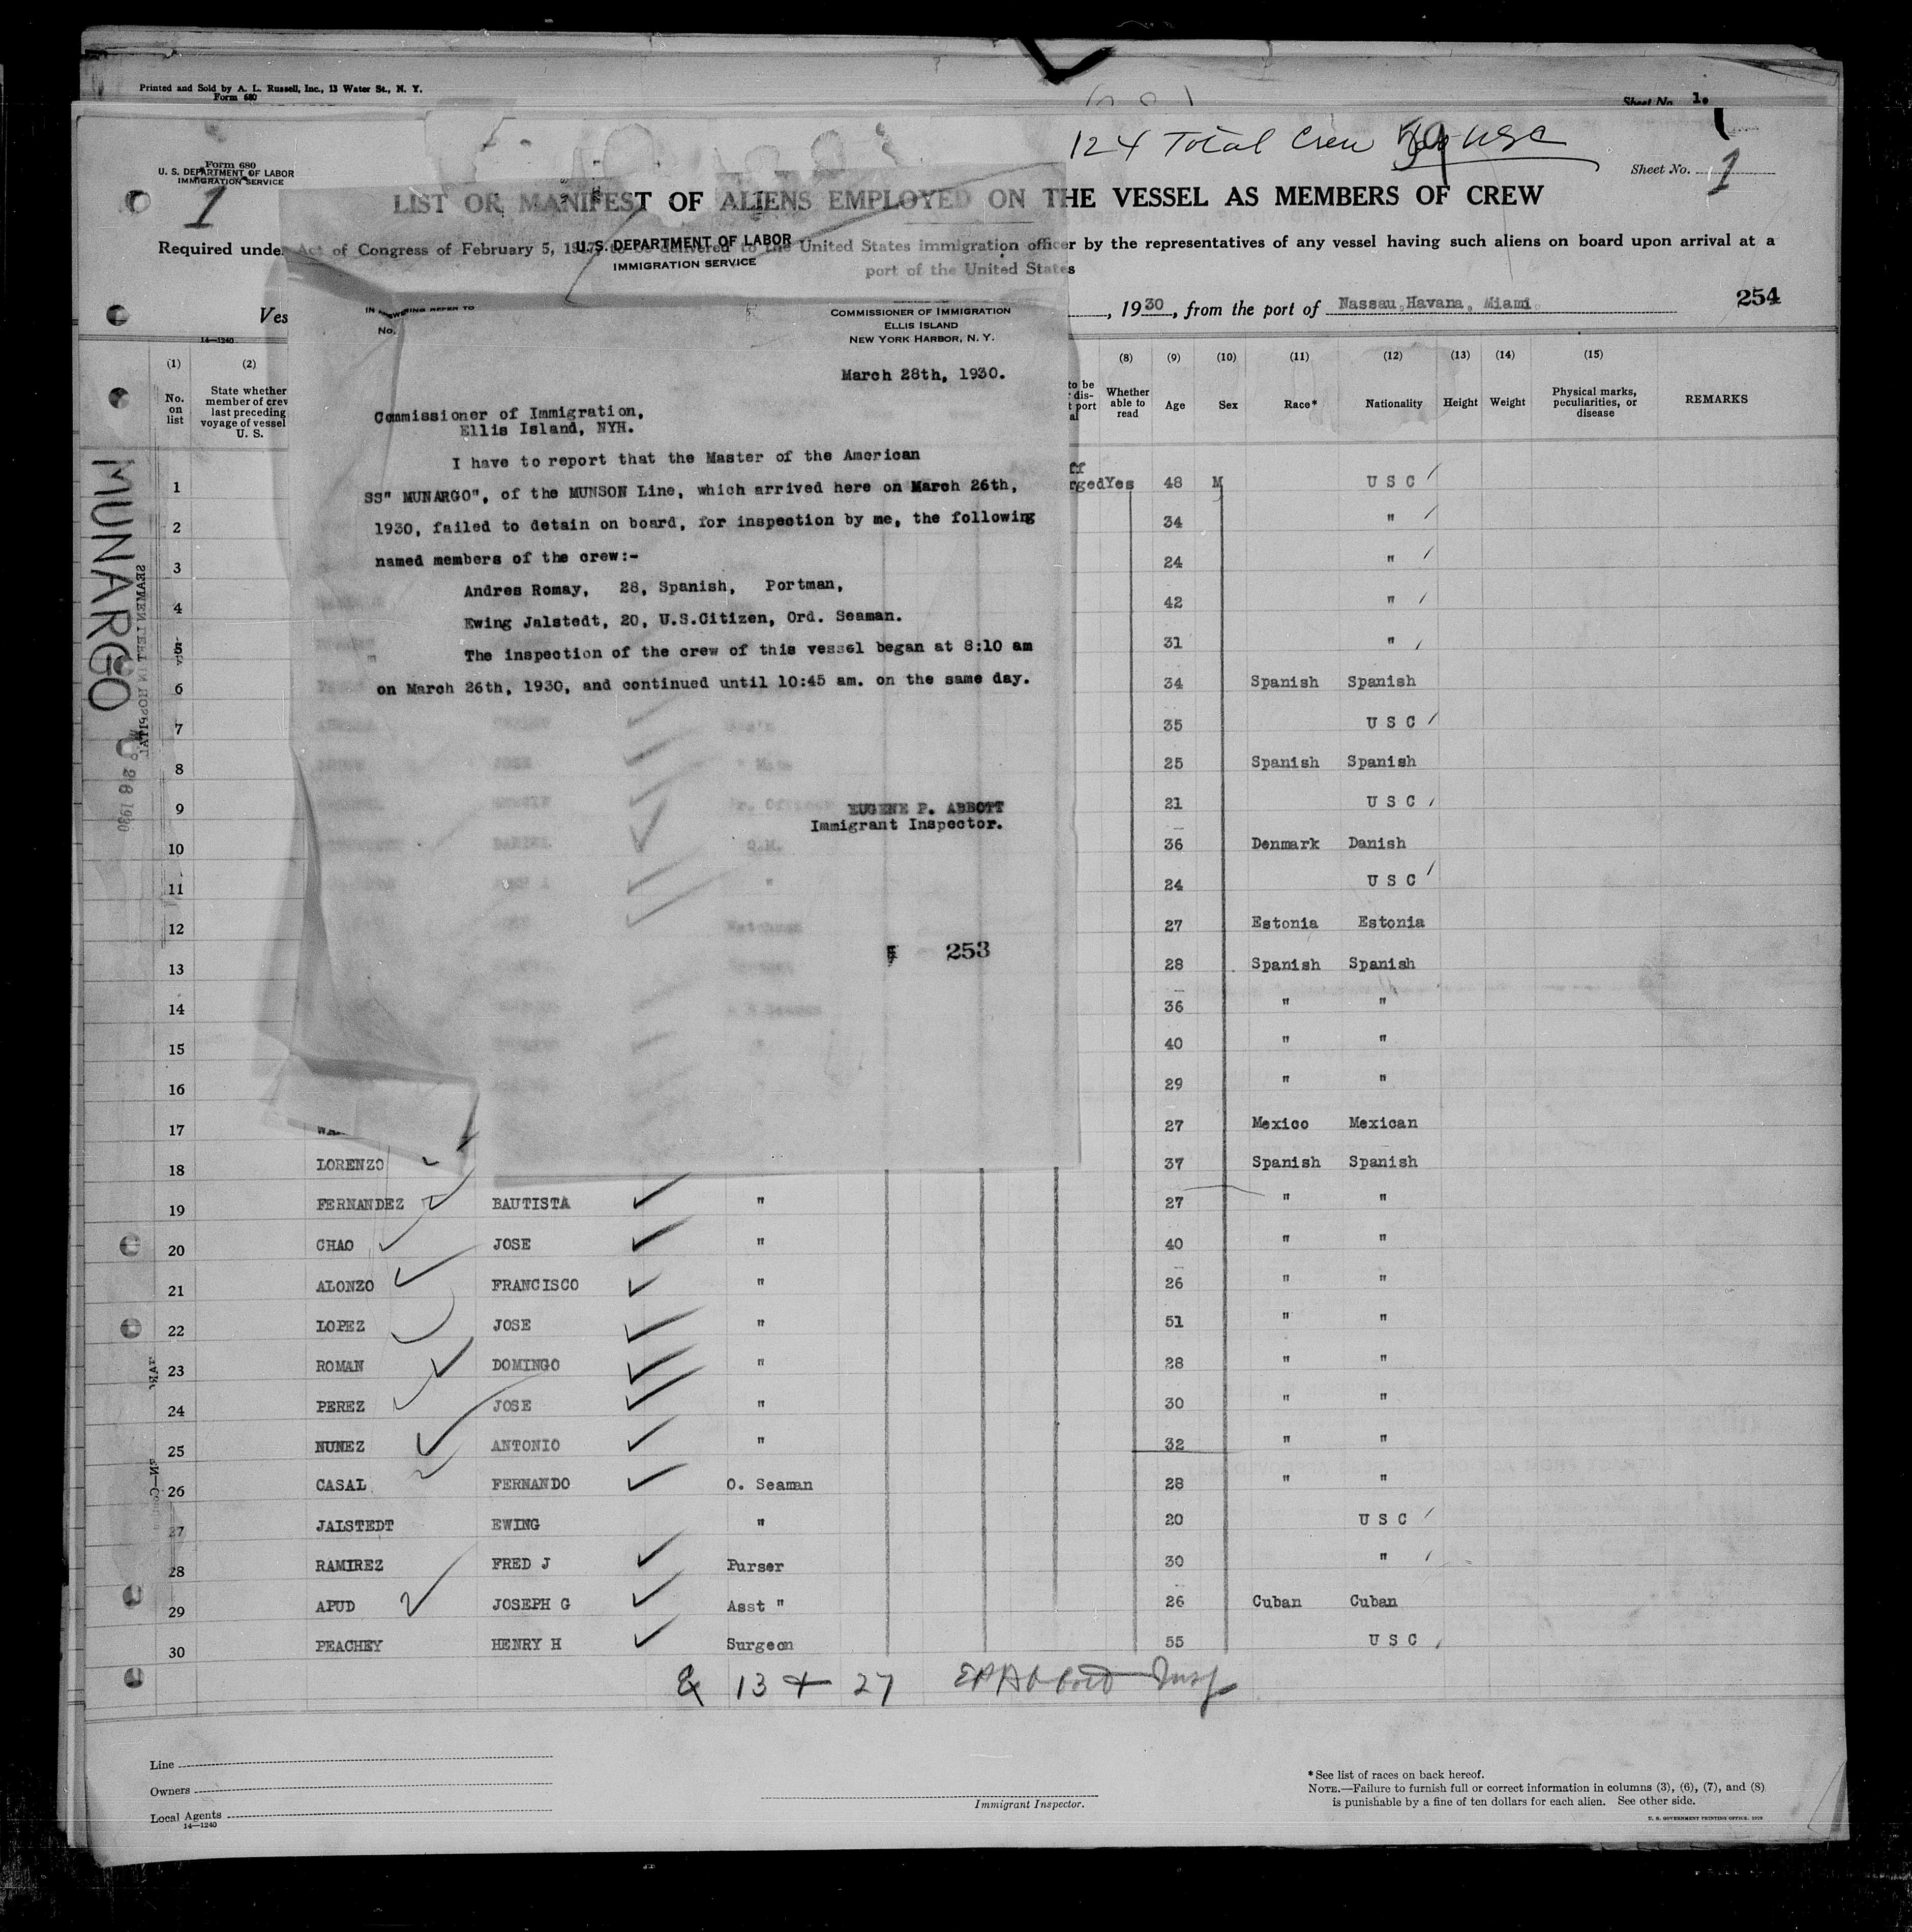 Printed and Sold by A. L. Russell, Inc., 13 Water St., N. Y.
Form 680
Sheet No. 1.
124 Total Crew 59 USC
Form 680
U. S. DEPARTMENT OF LABOR
IMMIGRATION SERVICE
1
Sheet No. 1
LIST OR MANIFEST OF ALIENS EMPLOYED ON THE VESSEL AS MEMBERS OF CREW
Required under Act of Congress of February 5, 1917, to be delivered to the United States immigration officer by the representatives of any vessel having such aliens on board upon arrival at a
port of the United States
Ves
, 1930, from the port of Nassau, Havana, Miami.
254
14—1240
U. S. DEPARTMENT OF LABOR
IMMIGRATION SERVICE
IN ANSWERING REFER TO
No.
COMMISSIONER OF IMMIGRATION
ELLIS ISLAND
NEW YORK HARBOR, N. Y.
March 28th, 1930.
Commissioner of Immigration,
Ellis Island, NYH.
I have to report that the Master of the American
SS" MUNARGO", of the MUNSON Line, which arrived here on March 26th,
1930, failed to detain on board, for inspection by me, the following
named members of the crew:-
Andres Romay, 28, Spanish, Portman,
Ewing Jalstedt, 20, U.S.Citizen, Ord. Seaman.
The inspection of the crew of this vessel began at 8:10 am
on March 26th, 1930, and continued until 10:45 am. on the same day.
EUGENE P. ABBOTT
Immigrant Inspector.
253
MUNARGO
SEAMEN LEFT IN HOSPITAL
26 1930
(1) (2) (8) (9) (10) (11) (12) (13) (14) (15)
No. on list
State whether member of crew last preceding voyage of vessel U. S.
Whether able to read
Age Sex Race* Nationality Height Weight
Physical marks, peculiarities, or disease
REMARKS
1 Yes 48 M U S C
2 34 "
3 24 "
4 42 "
5 31 "
6 34 Spanish Spanish
7 35 U S C
8 25 Spanish Spanish
9 21 U S C
10 36 Denmark Danish
11 24 U S C
12 27 Estonia Estonia
13 28 Spanish Spanish
14 36 " "
15 40 " "
16 29 " "
17 27 Mexico Mexican
18 LORENZO 37 Spanish Spanish
19 FERNANDEZ BAUTISTA " 27 " "
20 CHAO JOSE " 40 " "
21 ALONZO FRANCISCO " 26 " "
22 LOPEZ JOSE " 51 " "
23 ROMAN DOMINGO " 28 " "
24 PEREZ JOSE " 30 " "
25 NUNEZ ANTONIO " 32 " "
26 CASAL FERNANDO O. Seaman 28 " "
27 JALSTEDT EWING " 20 U S C
28 RAMIREZ FRED J Purser 30 "
29 APUD JOSEPH G Asst " 26 Cuban Cuban
30 PEACHEY HENRY H Surgeon 55 U S C
& 13 + 27 EPAbbott Insp
Line
Owners
Local Agents
14—1240
Immigrant Inspector.
*See list of races on back hereof.
NOTE.—Failure to furnish full or correct information in columns (3), (6), (7), and (8)
is punishable by a fine of ten dollars for each alien. See other side.
U. S. GOVERNMENT PRINTING OFFICE, 1929